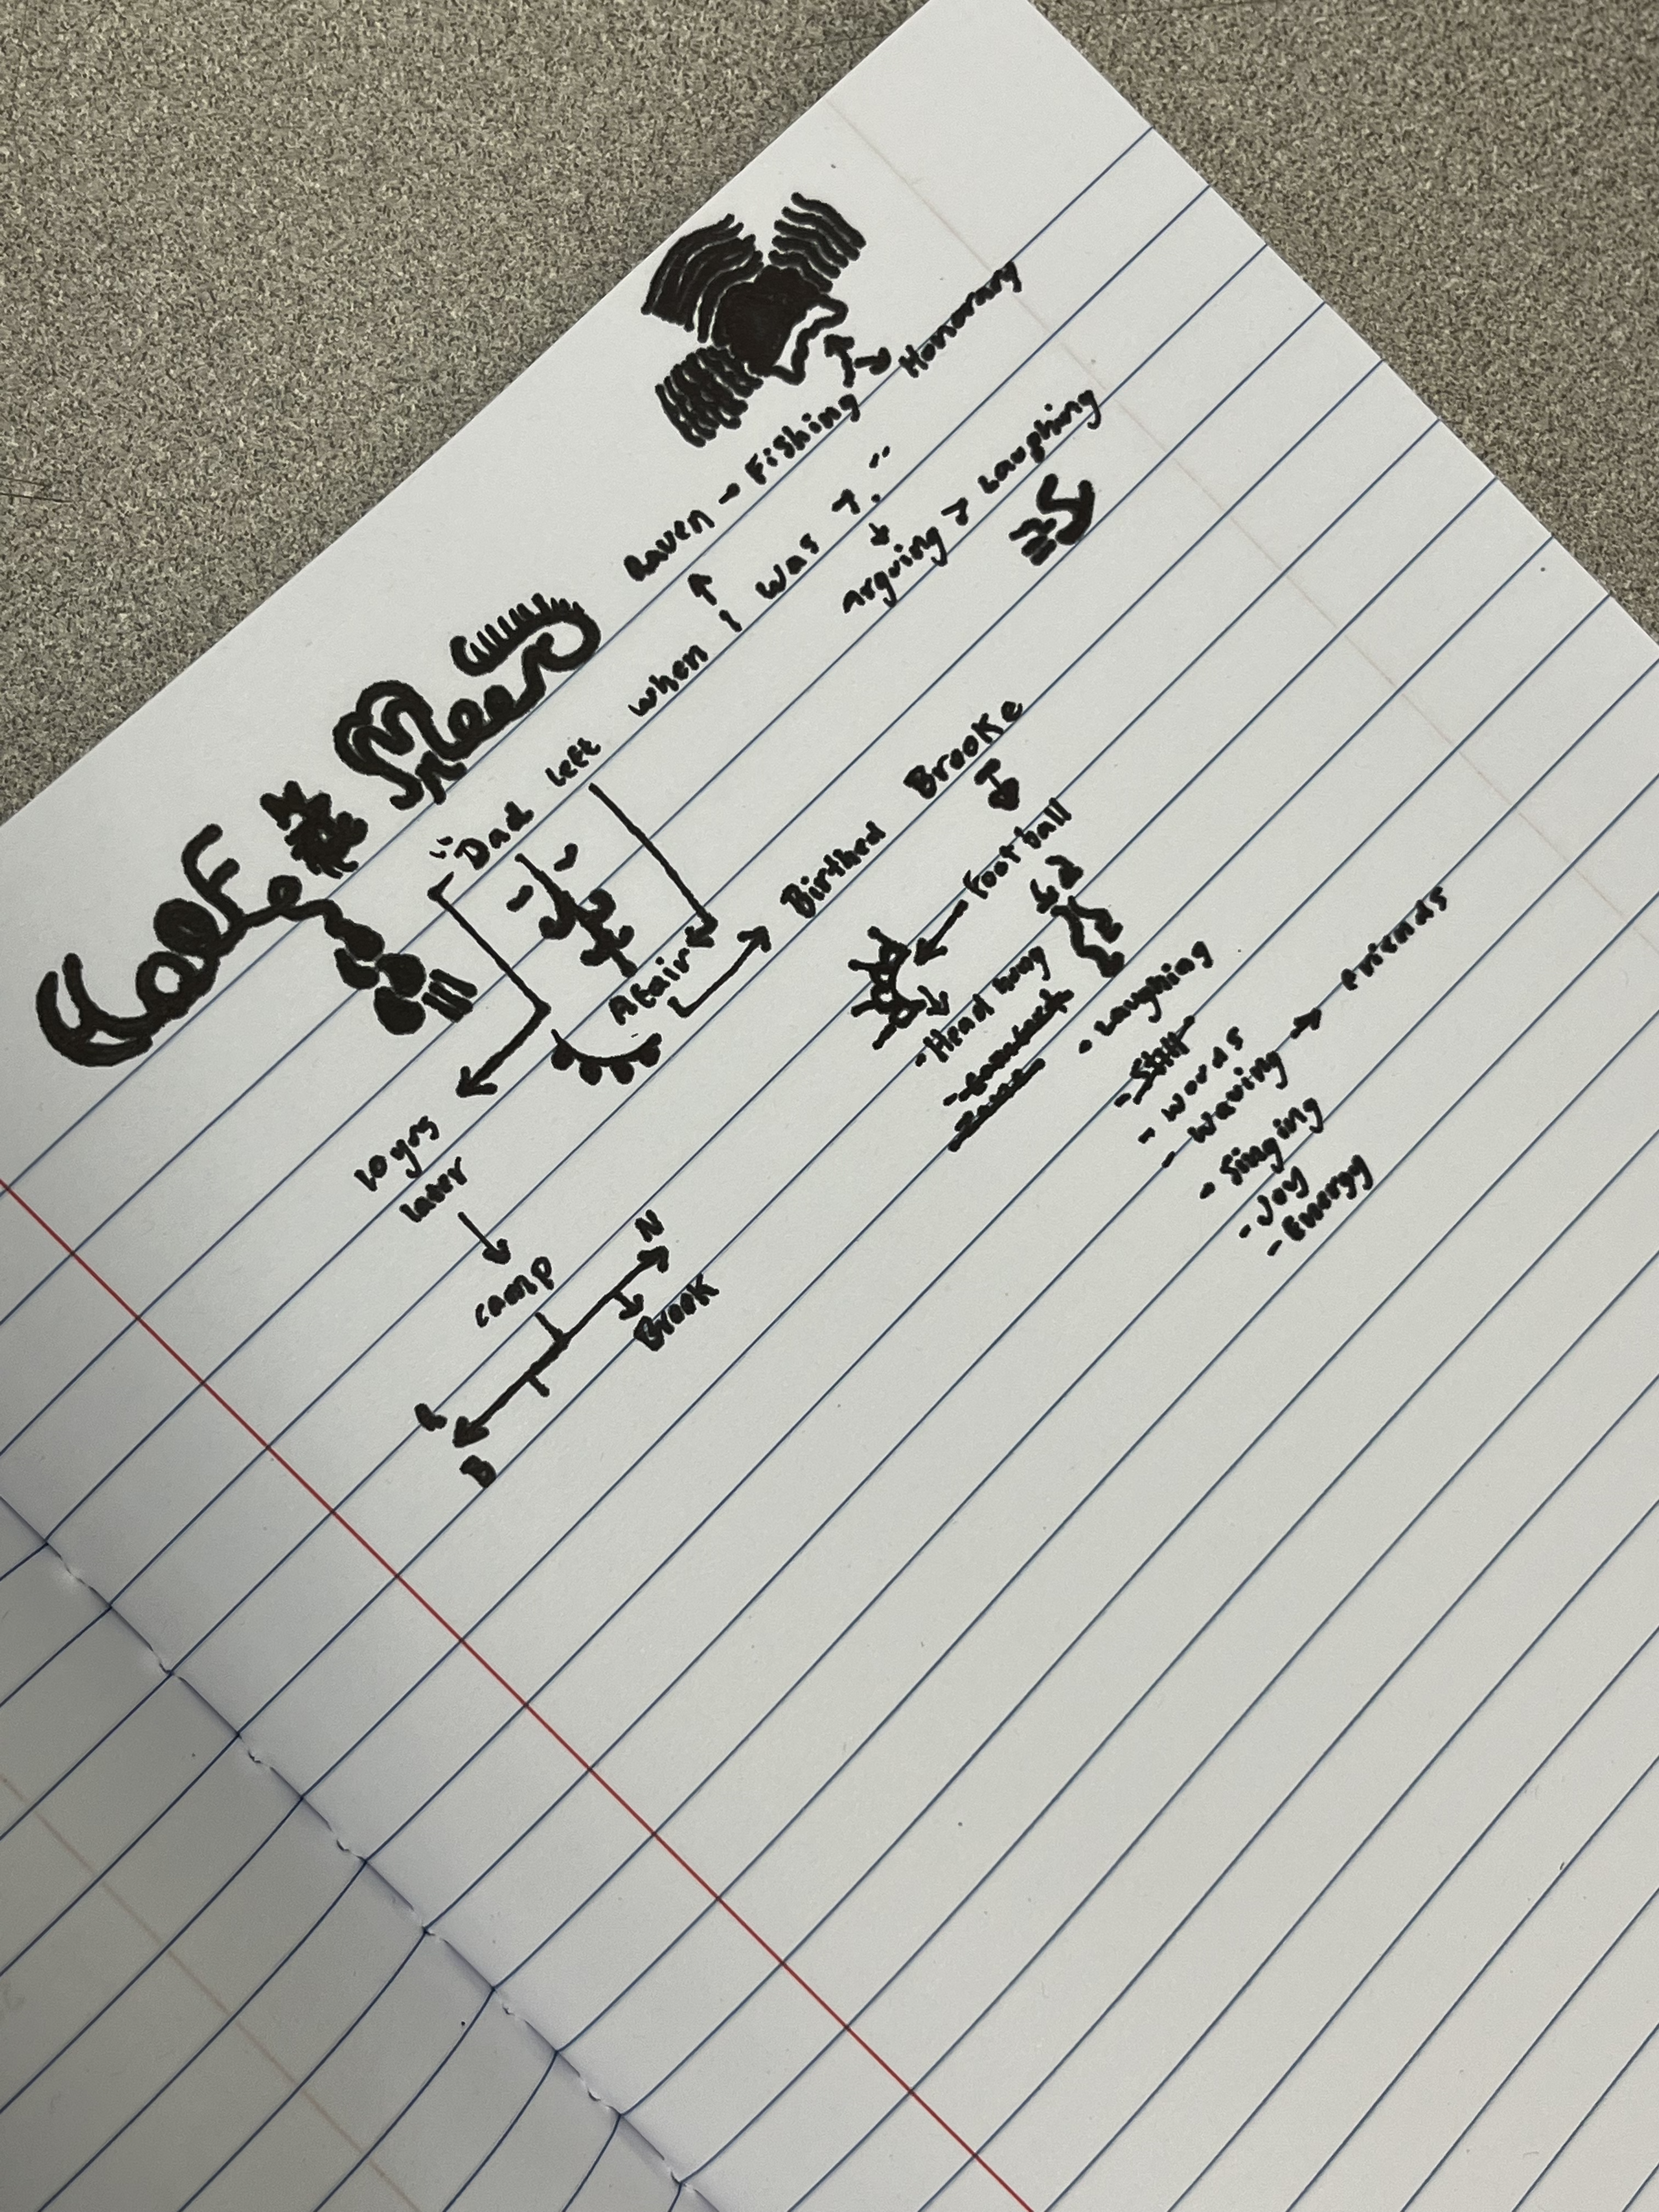 Raven - Fishing
Honorary
"Dad left when I was 7."
Arguing → Laughing
Afair
Birthed Brooke
Football
10 yrs
later
camp
N
Brook
B
- Head hung
- Laughing
- Still
- words
- waving → Friends
- Singing
- Joy
- Energy